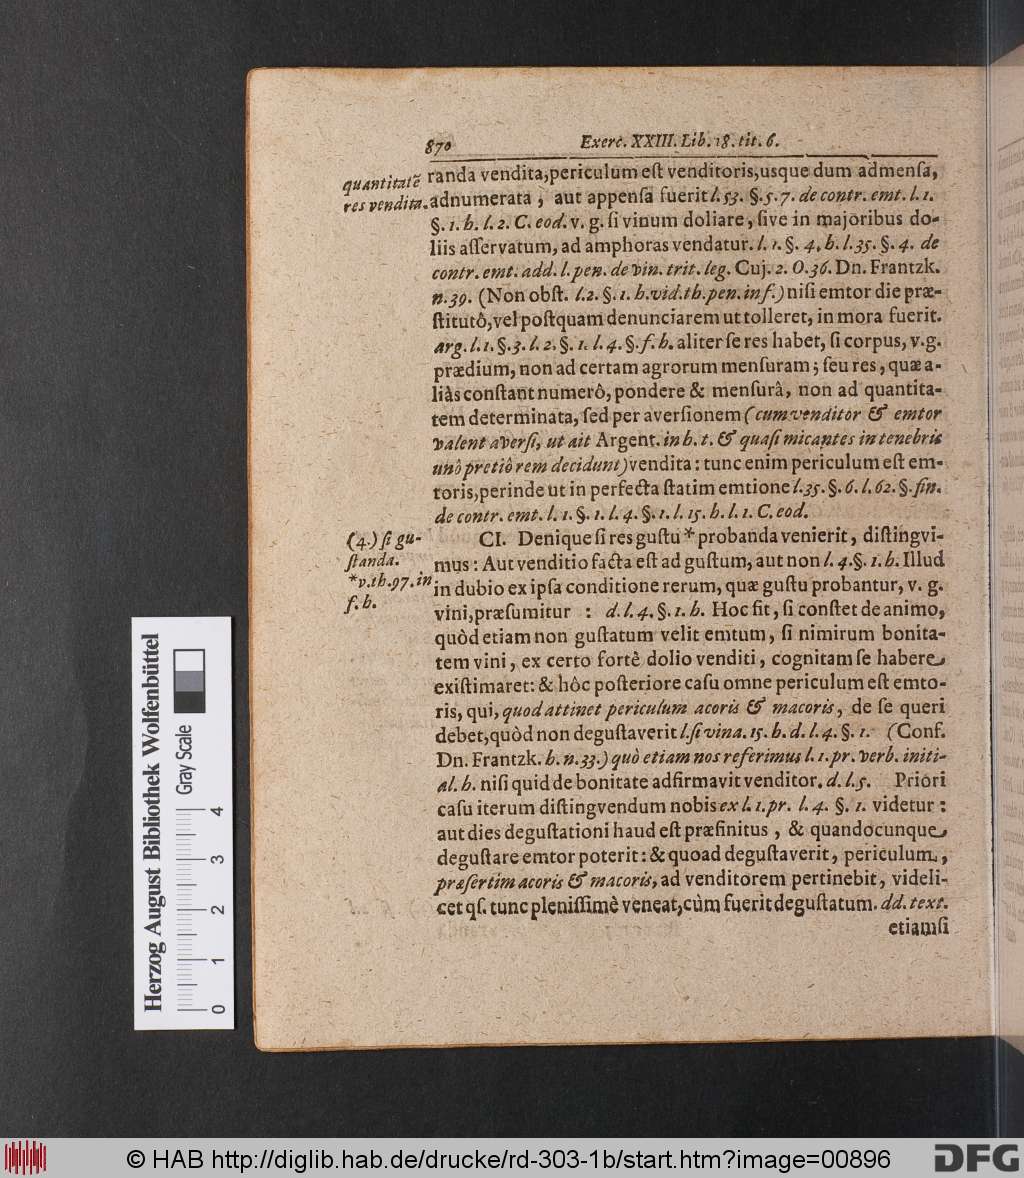 870 Exerc. XXIII. Lib. 18. tit. 6.
quantitatē
res vendita.
randa vendita, periculum eſt venditoris, usque dum admenſa,
adnumerata, aut appenſa fuerit l. 53. §. 5. 7. de contr. emt. l. 1.
§. 1. h. l. 2. C. eod. v. g. ſi vinum doliare, ſive in majoribus do-
liis aſſervatum, ad amphoras vendatur. l. 1. §. 4. h. l. 35. §. 4. de
contr. emt. add. l. pen. de vin. trit. leg. Cuj. 2. O. 36. Dn. Frantzk.
n. 39. (Non obſt. l. 2. §. 1. h. vid. th. pen. inf.) niſi emtor die præ-
ſtitutô, vel poſtquam denunciarem ut tolleret, in mora fuerit.
arg. l. 1. §. 3. l. 2. §. 1. l. 4. §. f. h. aliter ſe res habet, ſi corpus, v. g.
prædium, non ad certam agrorum menſuram; ſeu res, quæ a-
liàs conſtant numerô, pondere & menſurâ, non ad quantita-
tem determinata, ſed per averſionem (cum venditor & emtor
valent averſi, ut ait Argent. in h. t. & quaſi micantes in tenebris
unô pretiô rem decidunt) vendita: tunc enim periculum eſt em-
toris, perinde ut in perfecta ſtatim emtione l. 35. §. 6. l. 62. §. fin.
de contr. emt. l. 1. §. 1. l. 4. §. 1. l. 15. h. l. 1. C. eod.
(4.) ſi gu-
ſtanda.
*v. th. 97. in
f. h.
CI. Denique ſi res guſtu * probanda venierit, diſtingvi-
mus: Aut venditio facta eſt ad guſtum, aut non l. 4. §. 1. h. Illud
in dubio ex ipſa conditione rerum, quæ guſtu probantur, v. g.
vini, præſumitur : d. l. 4. §. 1. h. Hoc fit, ſi conſtet de animo,
quòd etiam non guſtatum velit emtum, ſi nimirum bonita-
tem vini, ex certo fortè dolio venditi, cognitam ſe habere
exiſtimaret: & hôc poſteriore caſu omne periculum eſt emto-
ris, qui, quod attinet periculum acoris & macoris, de ſe queri
debet, quòd non deguſtaverit l. ſi vina. 15. h. d. l. 4. §. 1. (Conf.
Dn. Frantzk. h. n. 33.) quò etiam nos referimus l. 1. pr. verb. initi-
al. h. niſi quid de bonitate adfirmavit venditor. d. l. 5. Priori
caſu iterum diſtingvendum nobis ex l. 1. pr. l. 4. §. 1. videtur:
aut dies deguſtationi haud eſt præfinitus, & quandocunque
deguſtare emtor poterit: & quoad deguſtaverit, periculum,
præſertim acoris & macoris, ad venditorem pertinebit, videli-
cet qſ. tunc pleniſſimè veneat, cùm fuerit deguſtatum. dd. text.
etiamſi
Herzog August Bibliothek Wolfenbüttel
Gray Scale
0 1 2 3 4
© HAB http://diglib.hab.de/drucke/rd-303-1b/start.htm?image=00896
DFG